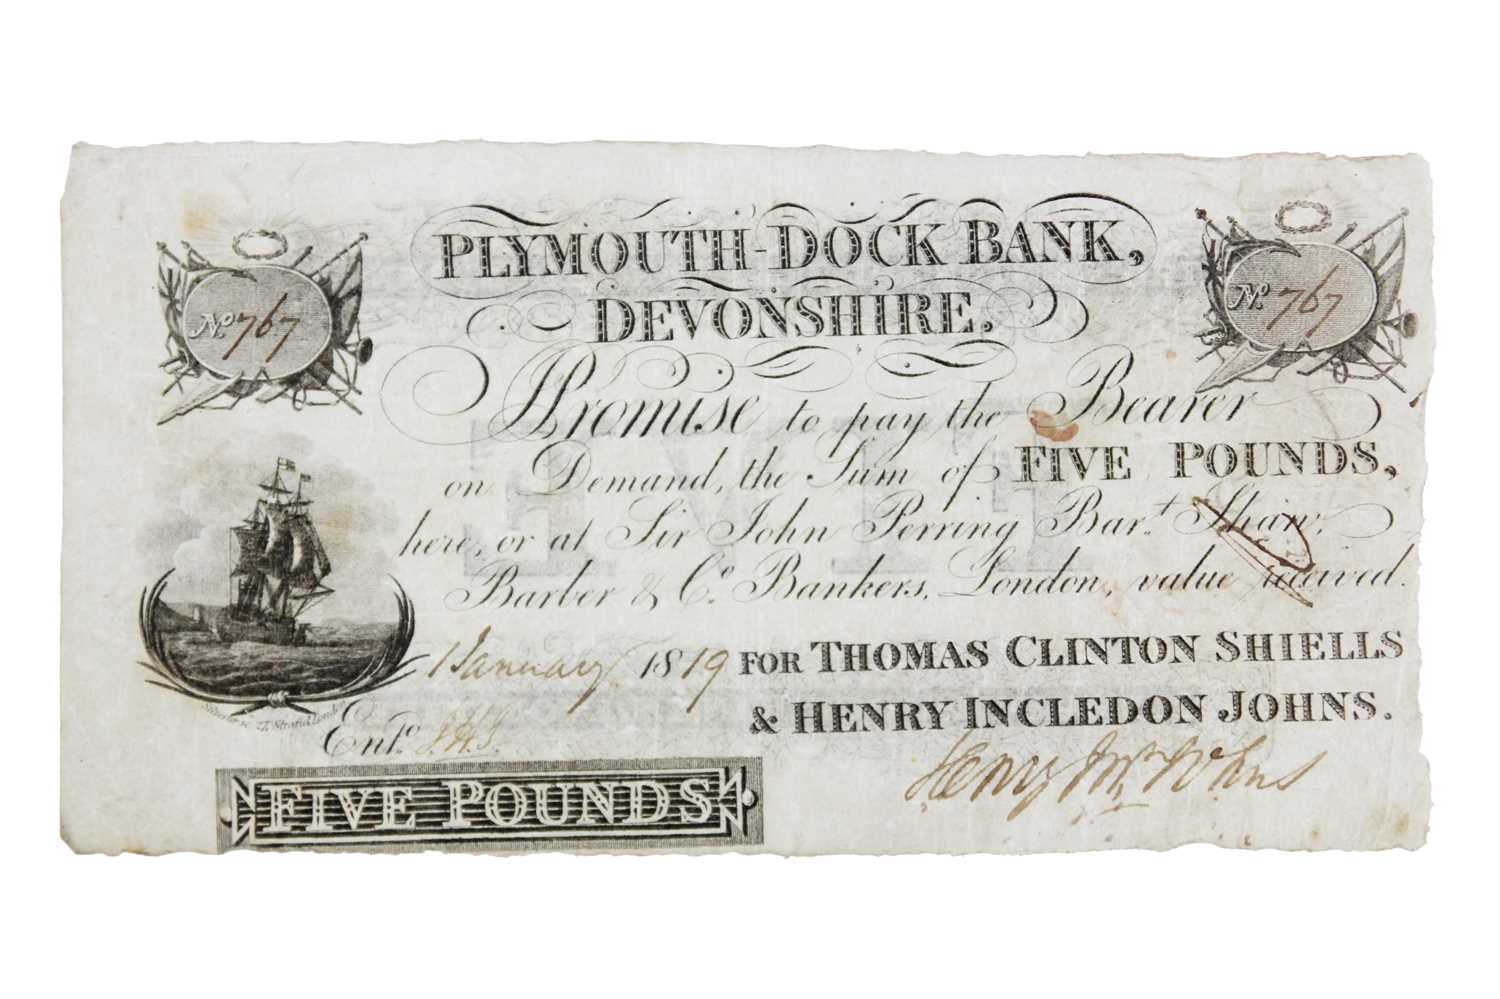 PLYMOUTH-DOCK BANK,
DEVONSHIRE.
No. 767
No. 767
Promise to pay the Bearer
on Demand, the Sum of FIVE POUNDS,
here, or at Sir John Perring Bar.t Shaw,
Barber & Co. Bankers, London, value received.
1 January 1819 FOR THOMAS CLINTON SHIELLS
& HENRY INCLEDON JOHNS.
Strand London
Entd.
FIVE POUNDS
Henry Johns